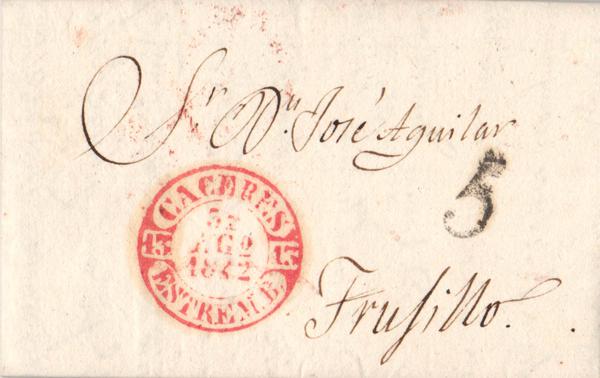 Sr. Dn. José Aguilar
5
CACERES
15 15
AGO
1842
ESTREM.B.
Trusillo.